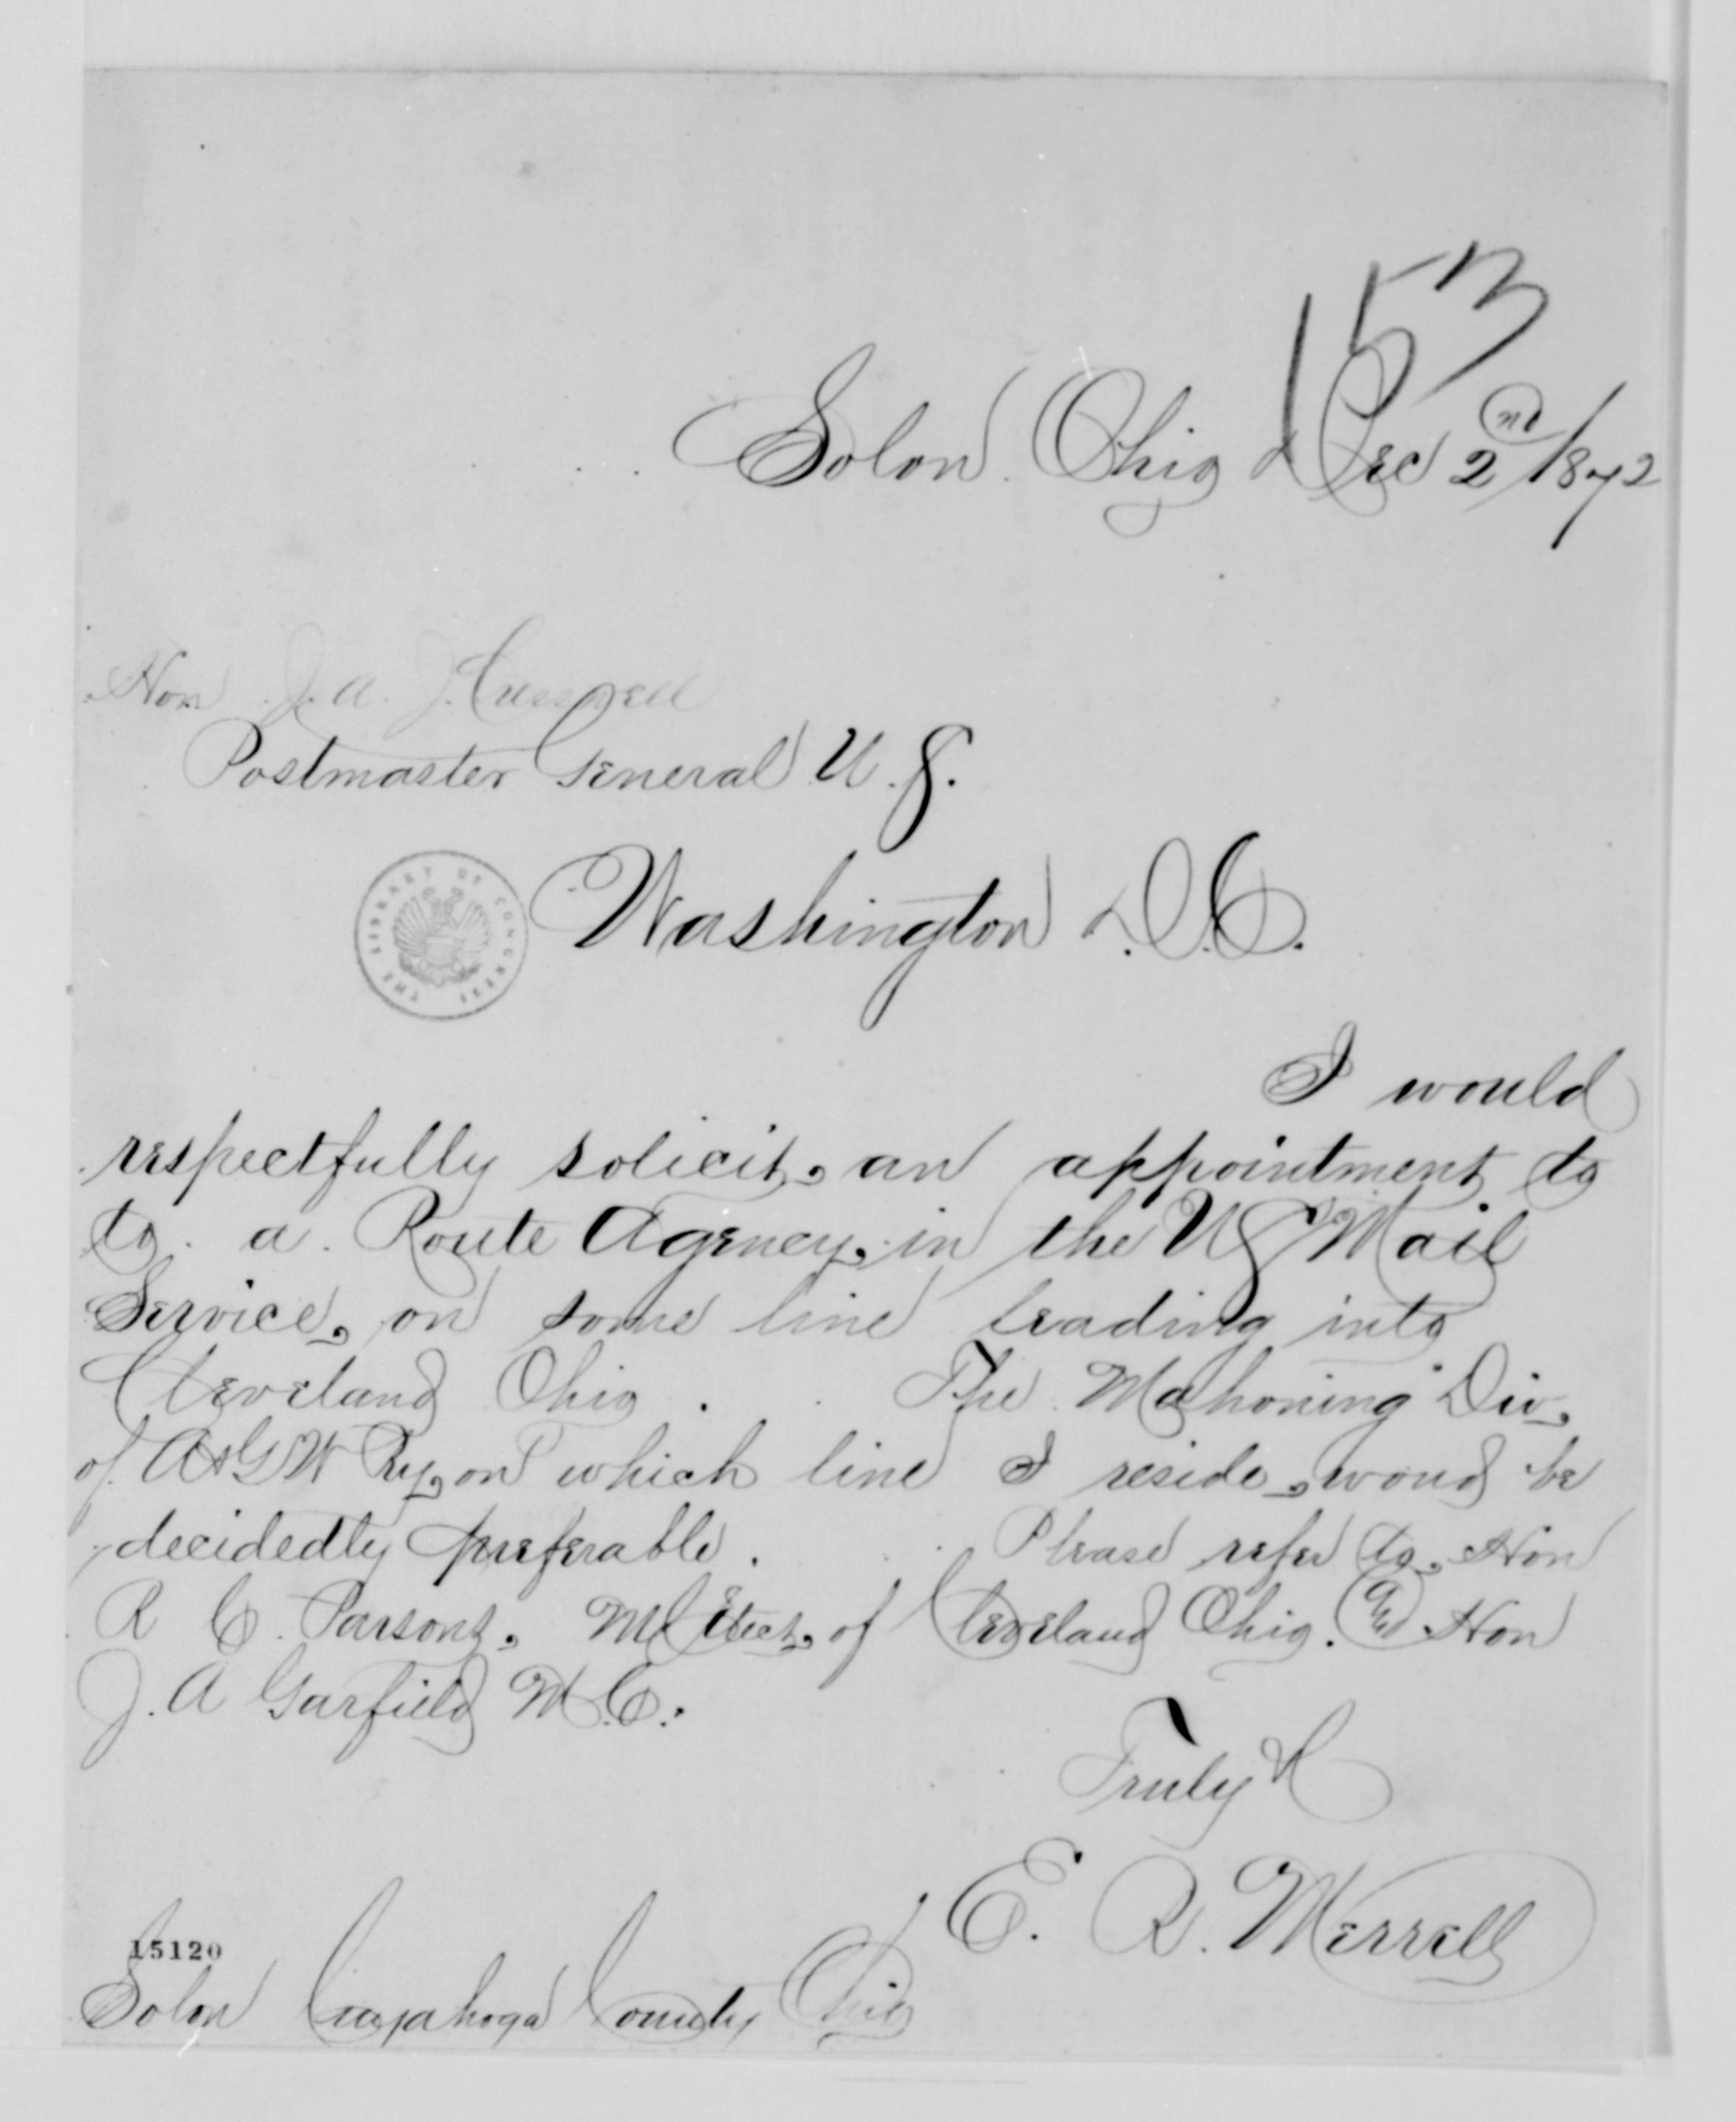 153
Solon Ohio Dec 2nd 1872
Hon J. A. J. Cresswell
Postmaster General U. S.
THE LIBRARY OF CONGRESS
Washington D. C.
I would
respectfully solicit, an appointment to
to a Route Agency, in the US Mail
Service, on some line leading into
Cleveland Ohio. The Mahoning Div.
of A&GW Ry, on which line I reside, woud be
decidedly preferable. Please refer to, Hon
R C. Parsons, MC Elect, of Cleveland Ohio. and Hon
J. A Garfield M.C.
Truly
E. R. Merrell
15120
Solon Cuyahoga County Ohio